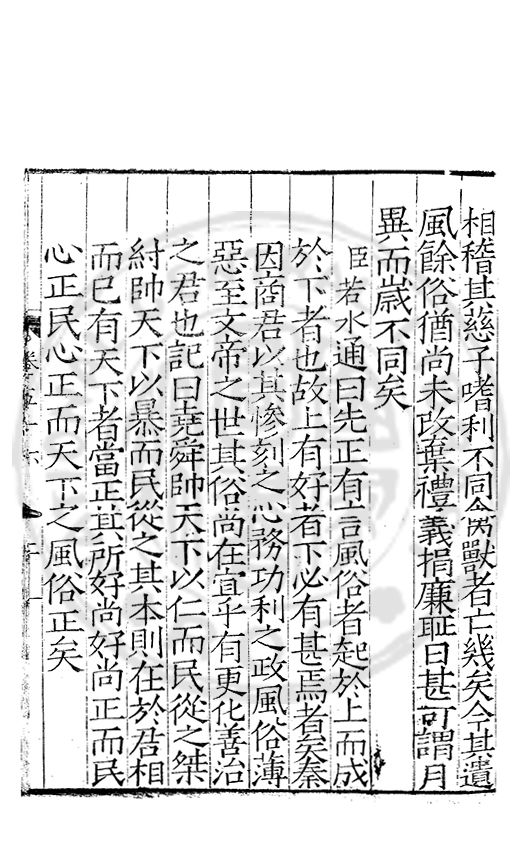 相稽其慈子嗜利不同禽獸者亡幾矣今其遺
風餘俗猶尚未改棄禮義捐廉恥日甚可謂月
異而嵗不同矣
臣若水通曰先正有言風俗者起於上而成
於下者也故上有好者下必有甚焉者矣秦
因商君以其慘刻之心務功利之政風俗薄
惡至文帝之世其俗尚在宜乎有更化善治
之君也記曰堯舜帥天下以仁而民從之桀
紂帥天下以暴而民從之其本則在於君相
而已有天下者當正其所好尚好尚正而民
心正民心正而天下之風俗正矣